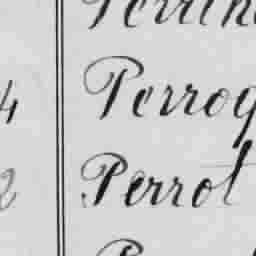 4 Perroq
2 Perrot